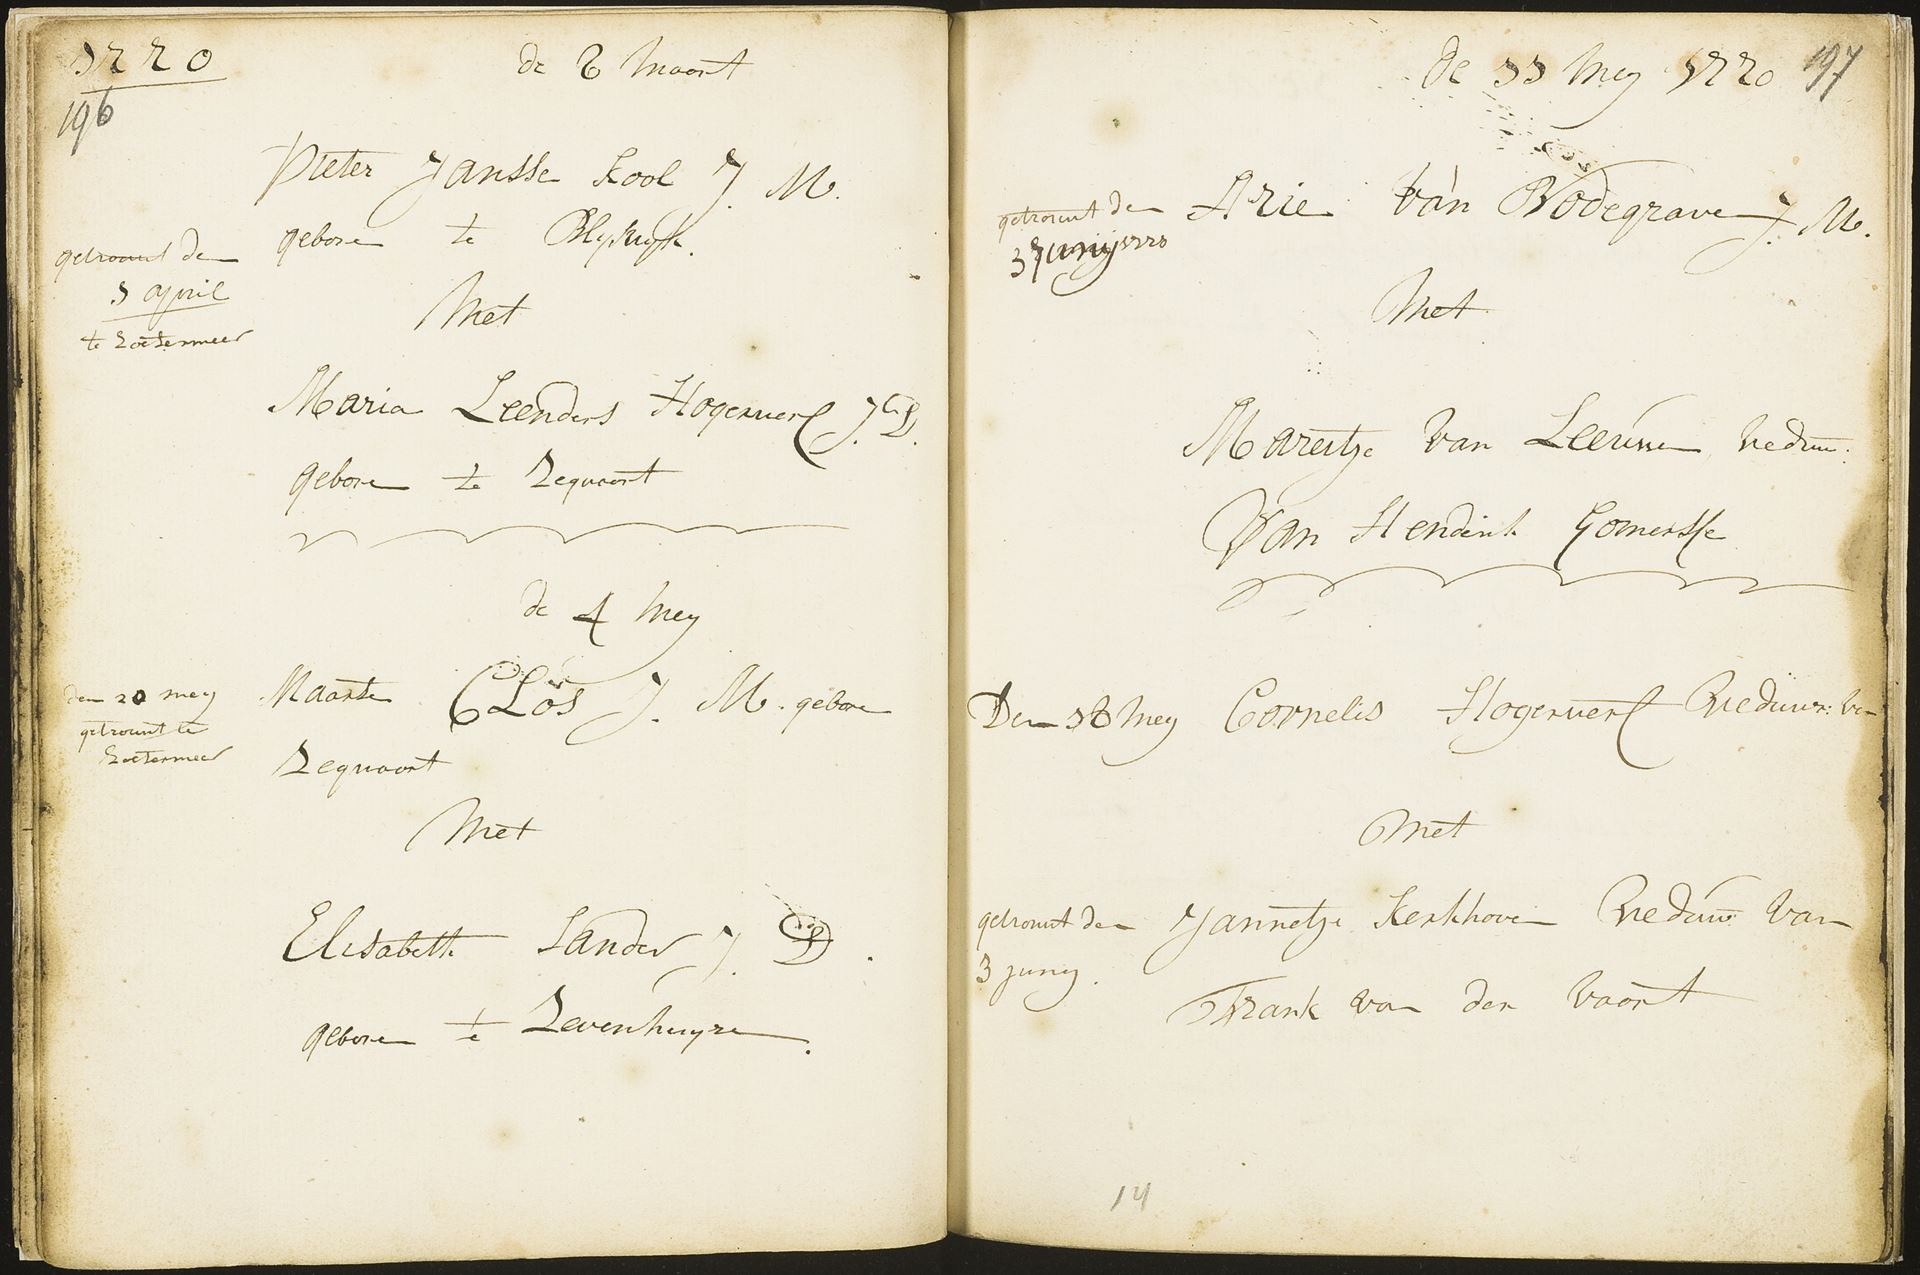 1770
196
de 8 Maort
Pieter Jansse Kool J. M.
gebore te Bleyswyk.
getrouwt den
1 april
te Zoetermeer
Met
Maria Leenders Hogerwerf J. D.
gebore te Zegwaort
de 4 Mey
Maarte Clos J. M. gebore
Zegwaort
den 20 mey
getrouwt te
Zoetermeer
Met
Elisabeth Sander J. D.
gebore te Zevenhuyze
de 11 Mey 1770
197
Arie van Bodegrave J. M.
getrouwt den
3 Junij 1770
Met
Mareitje van Leeuwe weduw:
Van Hendrik Gomersse
Den 18 Mey Cornelis Hogerwerf Weduwr: van
Met
getrouwt den
3 juny.
Jannetje Kerkhoven Weduw van
Frank van der Vaort
14